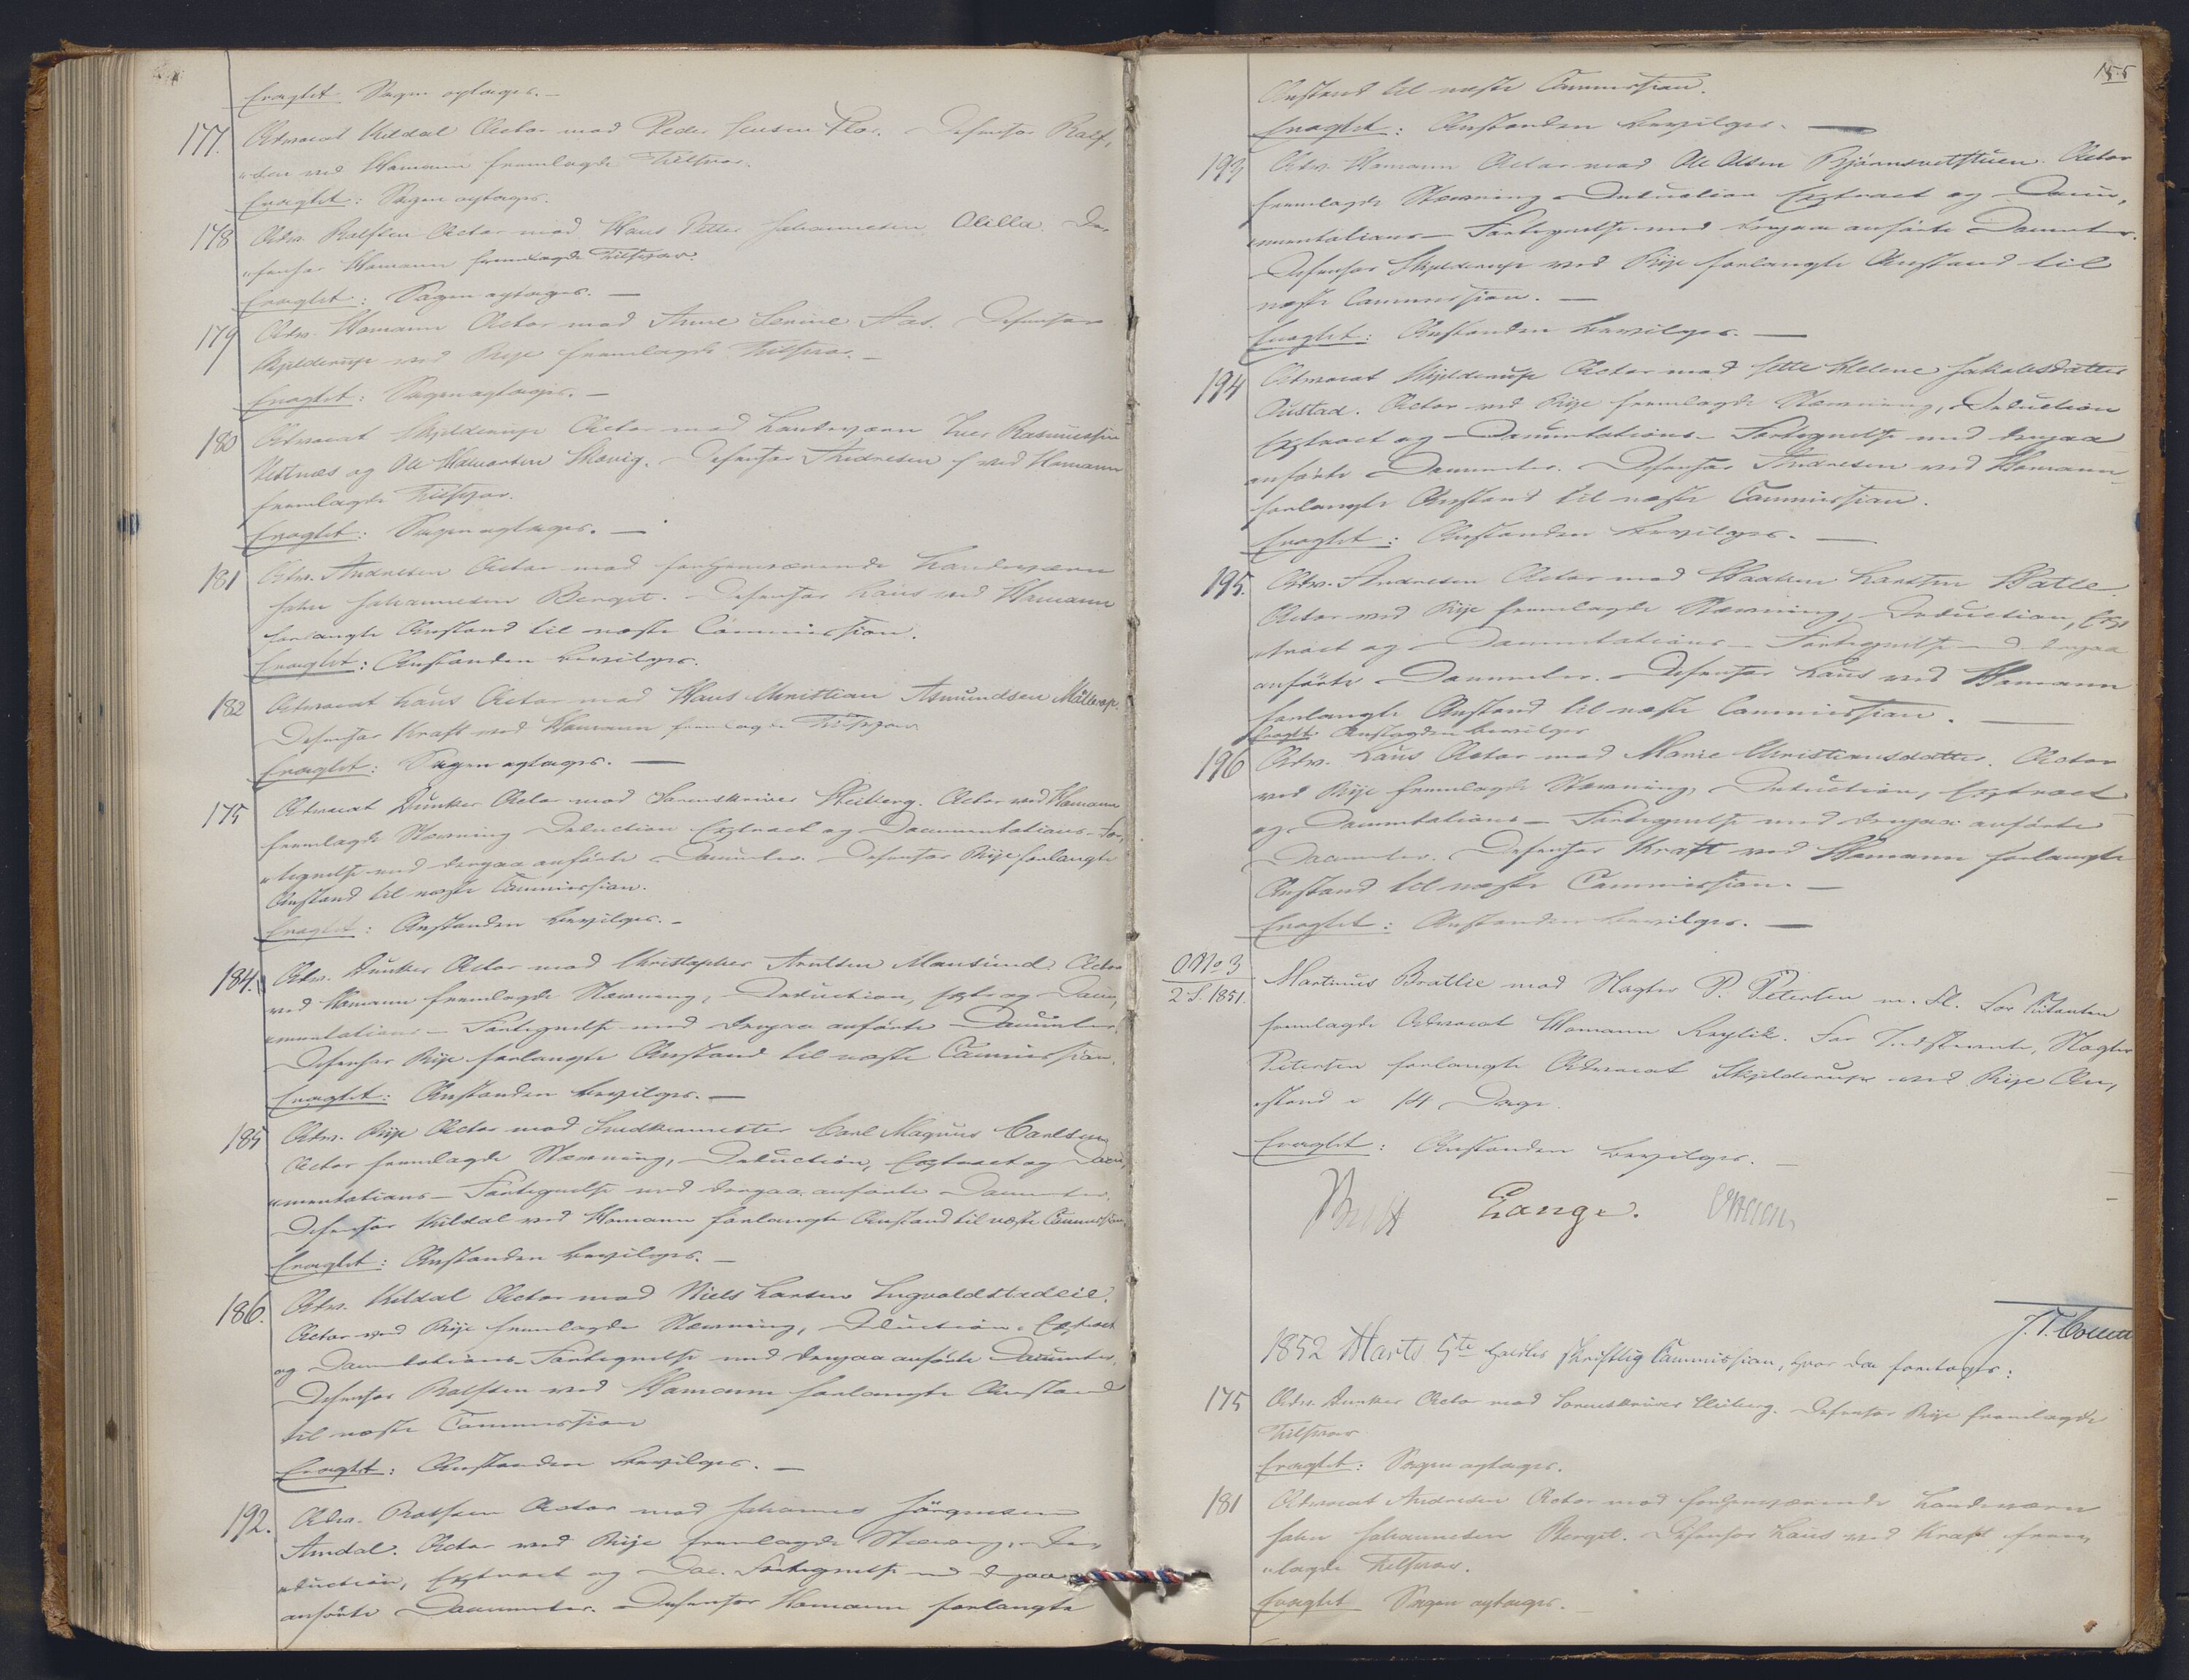 Eragtet Sagen optages. —
177. Advocat Kildal Actor mod Peder Jensen Flor. Defensor Ralf,
"sen ved Homann fremlagde Tilsvar.
Eragtet: Sagen optages.
178 Adv. Ralfsen Actor mod Hans Petter Johannesen Olilla. De,
"fensor Homann fremlagde Tilsvar.
Eragtet: Sagen optages. —
179 Adv. Homann Actor mod Anne Lenine Aas. Defensor
Skjelderup ved Rije fremlagde Tilsvar. —
Eragtet: Sagen optages. —
180 Advocat Skjelderup Actor mod Landværn Iver Rasmussen
Vestnæs og Ole Halvorsen Skavig. Defensor Andresen ved Homann
fremlagde Tilsvar.
Eragtet: Sagen optages. —
181 Adv. Andresen Actor mod forhenværende Landværn
John Johannesen Berget. Defensor Laus ved Homann
forlangte Anstand til næste Commission.
Eragtet: Anstanden bevilges.
182 Advocat Laus Actor mod Hans Christian Asmundsen
Defensor Kraft ved Homann fremlagde Tilsvar
Eragtet: Sagen optages. —
175 Advocat Dunker Actor mod Sorenskriver Heiberg. Actor ved Homann
fremlagde Stævning Deduction Extract og Documentations-For,
"tegnelse med derpaa anførte Documenter. Defensor Rije forlangte
Anstand til næste Commission.
Eragtet: Anstanden bevilges. —
184. Adv. Dunker Actor mod Christopher Arntsen Mausund. Actor
ved Homann fremlagde Stævning, Deduction, Extr. og Docu,
"mentations-Fortegnelse med derpaa anførte Documenter.
Defensor Rije forlangte Anstand til næste Commission.
Eragtet: Anstanden bevilges. —
185 Adv. Rije Actor mod Snedkermester Carl Magnus Carlsen
Actor fremlagde Stævning, Deduction, Extract og Docu,
"mentations-Fortegnelse med derpaa anførte Documenter.
Defensor Kildal ved Homann forlangte Anstand til næste Commission.
Eragtet: Anstanden bevilges. —
186. Adv. Kildal Actor mod Niels Larsen Ingvaldstadeie.
Actor ved Rije fremlagde Stævning, Deduction, Extract
og Documentations-Fortegnelse med derpaa anførte Documenter.
Defensor Ralfsen ved Homann forlangte Anstand
til næste Commission
Eragtet: Anstanden bevilges. —
192. Adv. Ralfsen Actor mod Johannes Jörgensen
Amdal. Actor ved Rije fremlagde Stævning, De,
"duction, Extract og Doc. Fortegnelse med derpaa
anførte Documenter. Defensor Homann forlangte
155
Anstand til næste Commission.
Eragtet: Anstanden bevilges. —
193 Adv. Homann Actor mod Ole Olsen Bjørnsvedstuen. Actor
fremlagde Stævning Deduction Extract og Docu,
"mentations-Fortegnelse med derpaa anførte Documenter.
Defensor Skjelderup ved Rije forlangte Anstand til
næste Commission. —
Eragtet: Anstanden bevilges. —
194 Advocat Skjelderup Actor mod Jette Helene Jakobsdatter
Oustad. Actor ved Rije fremlagde Stævning, Deduction
Extract og Documentations-Fortegnelse med derpaa
anførte Documenter. Defensor Andresen ved Homann
forlangte Anstand til næste Commission.
Eragtet: Anstanden bevilges. —
195. Adv. Andresen Actor mod Haaken Larssen Hatle.
Actor ved Rije fremlagde Stævning, Deduction, Ex,
"tract og Documentations-Fortegnelse med derpaa
anførte Documenter. Defensor Laus ved Homann
forlangte Anstand til næste Commission. —
Eragtet Anstanden bevilges
196 Adv. Laus Actor mod Marie Christiansdatter. Actor
ved Rije fremlagde Stævning, Deduction, Extract
og Documentations-Fortegnelse med derpaa anførte
Documenter. Defensor Kraft ved Homann forlangte
Anstand til næste Commission. —
Eragtet: Anstanden bevilges. —
O. No 3
2 S. 1851. Martinus Bratlie mod Slagter P. Petersen m. Fl. For Citanten
fremlagde Advocat Homann Replik. For Indstevnte, Slagter
Petersen forlangte Advocat Skjelderup ved Rije An,
"stand i 14 Dage.
Eragtet: Anstanden bevilges. —
Lange.
1852 Marts 5te holdtes skriftlig Commission, hvor da foretoges:
175 Adv. Dunker Actor mod Sorenskriver Heiberg. Defensor Rije fremlagde
Tilsvar
Eragtet: Sagen optages.
181 Advocat Andresen Actor mod forhenværende Landværn
John Johannesen Berget. Defensor Laus ved Kraft frem,
"lagde Tilsvar.
Eragtet Sagen optages. —